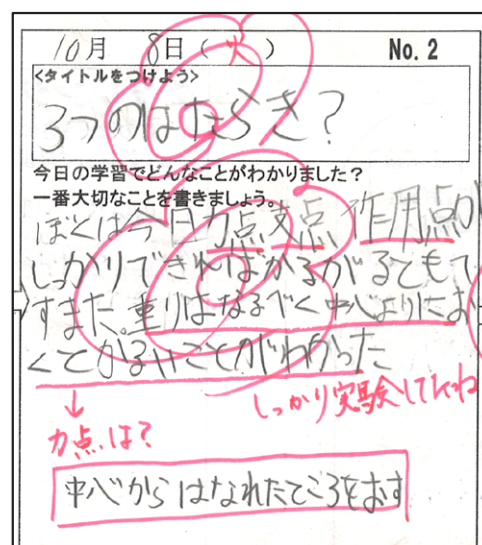 10月 8日(火) No. 2
<タイトルをつけよう>
3つのはたらき?
今日の学習でどんなことがわかりました?
一番大切なことを書きましょう。
ぼくは今日力点支点作用点が
しっかりできればかるがるともて
すまた。重りはなるべく中心よりにお
くとかるいことがわかった
しっかり実験してたね
↓
力点は?
中心からはなれたところをおす